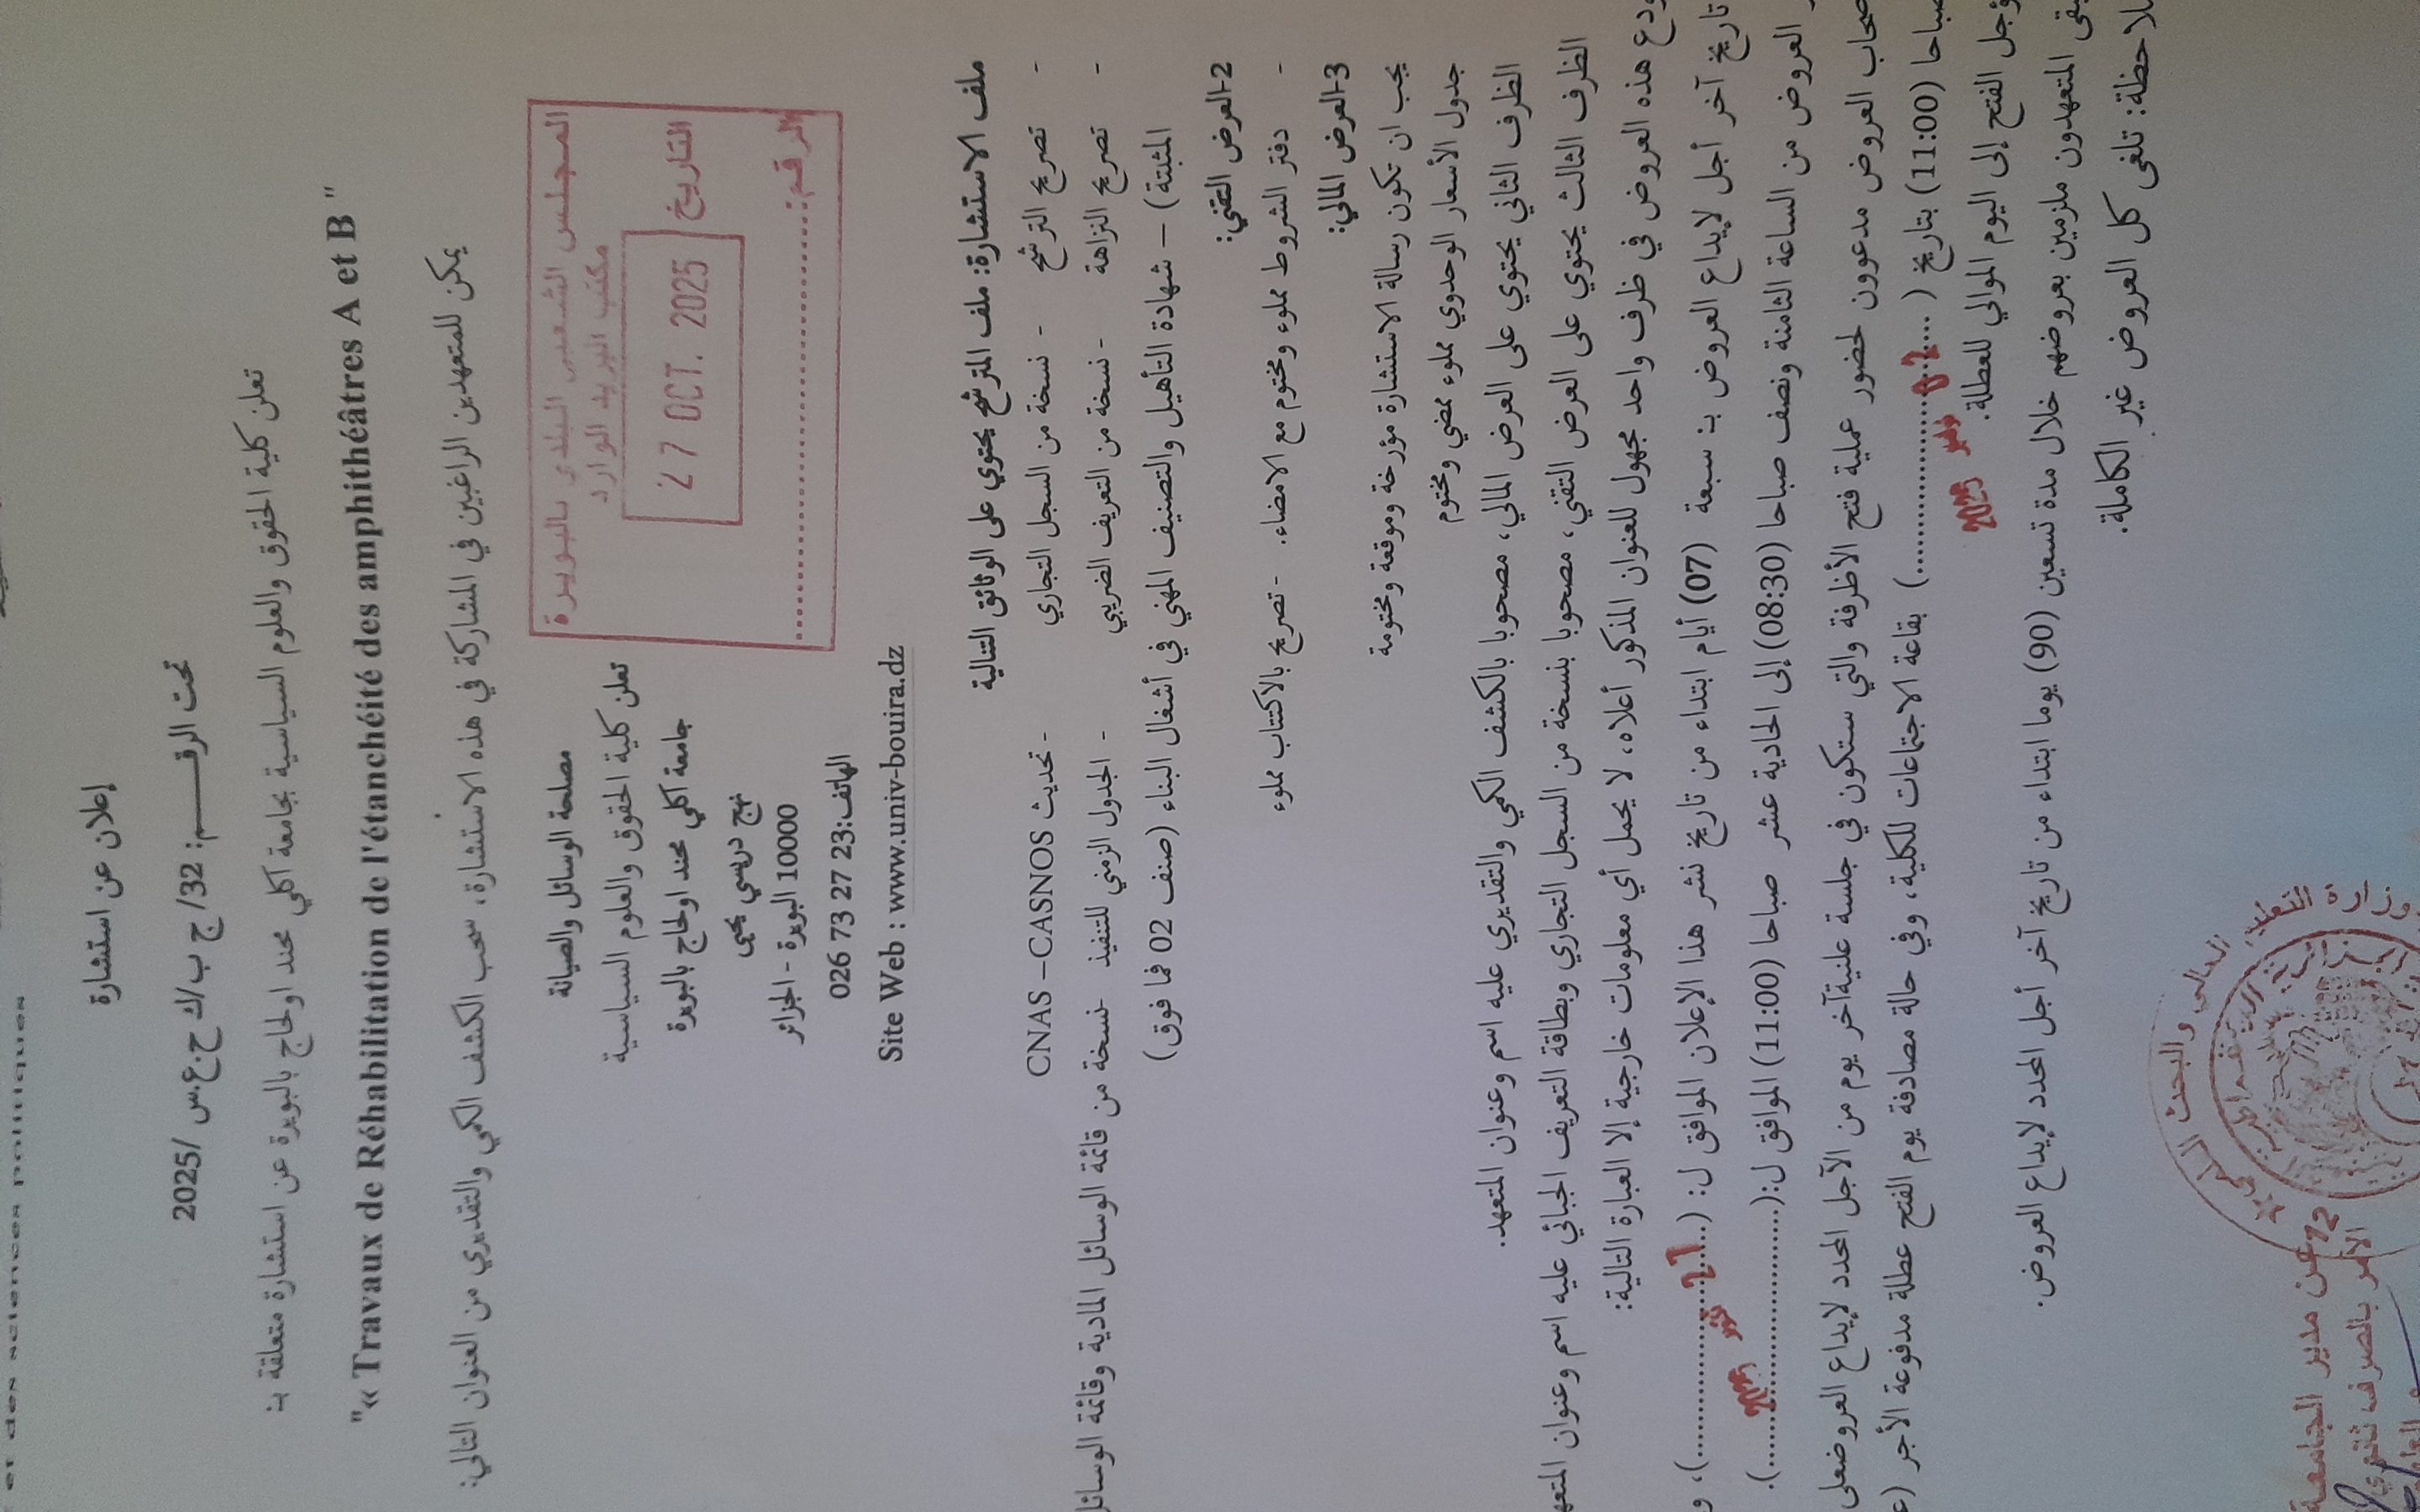 et des sciences politiques
إعلان عن استشارة
تحت الرقـــــم: 32/ ج ب/ك ح.ع.س /2025
تعلن كلية الحقوق والعلوم السياسية بجامعة اكلي محند اولحاج بالبويرة عن استشارة متعلقة بـ:
"« Travaux de Réhabilitation de l'étanchéité des amphithéâtres A et B "
يمكن للمتعهدين الراغبين في المشاركة في هذه الاستشارة، سحب الكشف الكمي والتقديري من العنوان التالي:
المجلس الشعبي البلدي بالبويرة
مكتب البريد الوارد
التاريخ 27 OCT. 2025
الرقم:
مصلحة الوسائل والصيانة
تعلن كلية الحقوق والعلوم السياسية
جامعة اكلي محند اولحاج بالبويرة
نهج دريسي يحي
10000 البويرة - الجزائر
الهاتف:23 27 73 026
Site Web : www.univ-bouira.dz
ملف الاستشارة: ملف المترشح يحتوي على الوثائق التالية
- تصريح الترشح - نسخة من السجل التجاري - تحديث CNAS –CASNOS
- تصريح النزاهة - نسخة من التعريف الضريبي - الجدول الزمني للتنفيذ -نسخة من قائمة الوسائل المادية وقائمة الوسائل
المثبتة) – شهادة التأهيل والتصنيف المهني في أشغال البناء (صنف 02 فما فوق)
2-العرض التقني:
- دفتر الشروط مملوء ومختوم مع الامضاء. -تصريح بالاكتتاب مملوء
3-العرض المالي:
يجب ان تكون رسالة الاستشارة مؤرخة وموقعة ومختومة
جدول الأسعار الوحدوي مملوء ممضي ومختوم
الظرف الثاني يحتوي على العرض المالي، مصحوبا بالكشف الكمي والتقديري عليه اسم وعنوان المتعهد.
الظرف الثالث يحتوي على العرض التقني، مصحوبا بنسخة من السجل التجاري وبطاقة التعريف الجبائي عليه اسم وعنوان
هذه العروض في ظرف واحد مجهول للعنوان المذكور أعلاه، لا يحمل أي معلومات خارجية إلا العبارة التالية:
تاريخ آخر أجل لإيداع العروض بـ: سبعة (07) أيام ابتداء من تاريخ نشر هذا الإعلان الموافق ل: (...........)، و
العروض من الساعة الثامنة ونصف صباحا (08:30) إلى الحادية عشر صباحا (11:00) الموافق ل:(........2025........).
العروض مدعوون لحضور عملية فتح الأظرفة والتي ستكون في جلسة علنيةآخر يوم من الآجل المحدد لإيداع العروضعلى
(11:00) بتاريخ ( ................ ) بقاعة الاجتماعات للكلية، وفي حالة مصادفة يوم الفتح عطلة مدفوعة الأجر
2025
الفتح إلى اليوم الموالي للعطلة.
المتعهدون ملزمين بعروضهم خلال مدة تسعين (90) يوما ابتداء من تاريخ آخر أجل المحدد لإيداع العروض.
تلغى كل العروض غير الكاملة.
وزارة التعليم العالي والبحث العلمي
عن مدير الجامعة
الآمر بالصرف